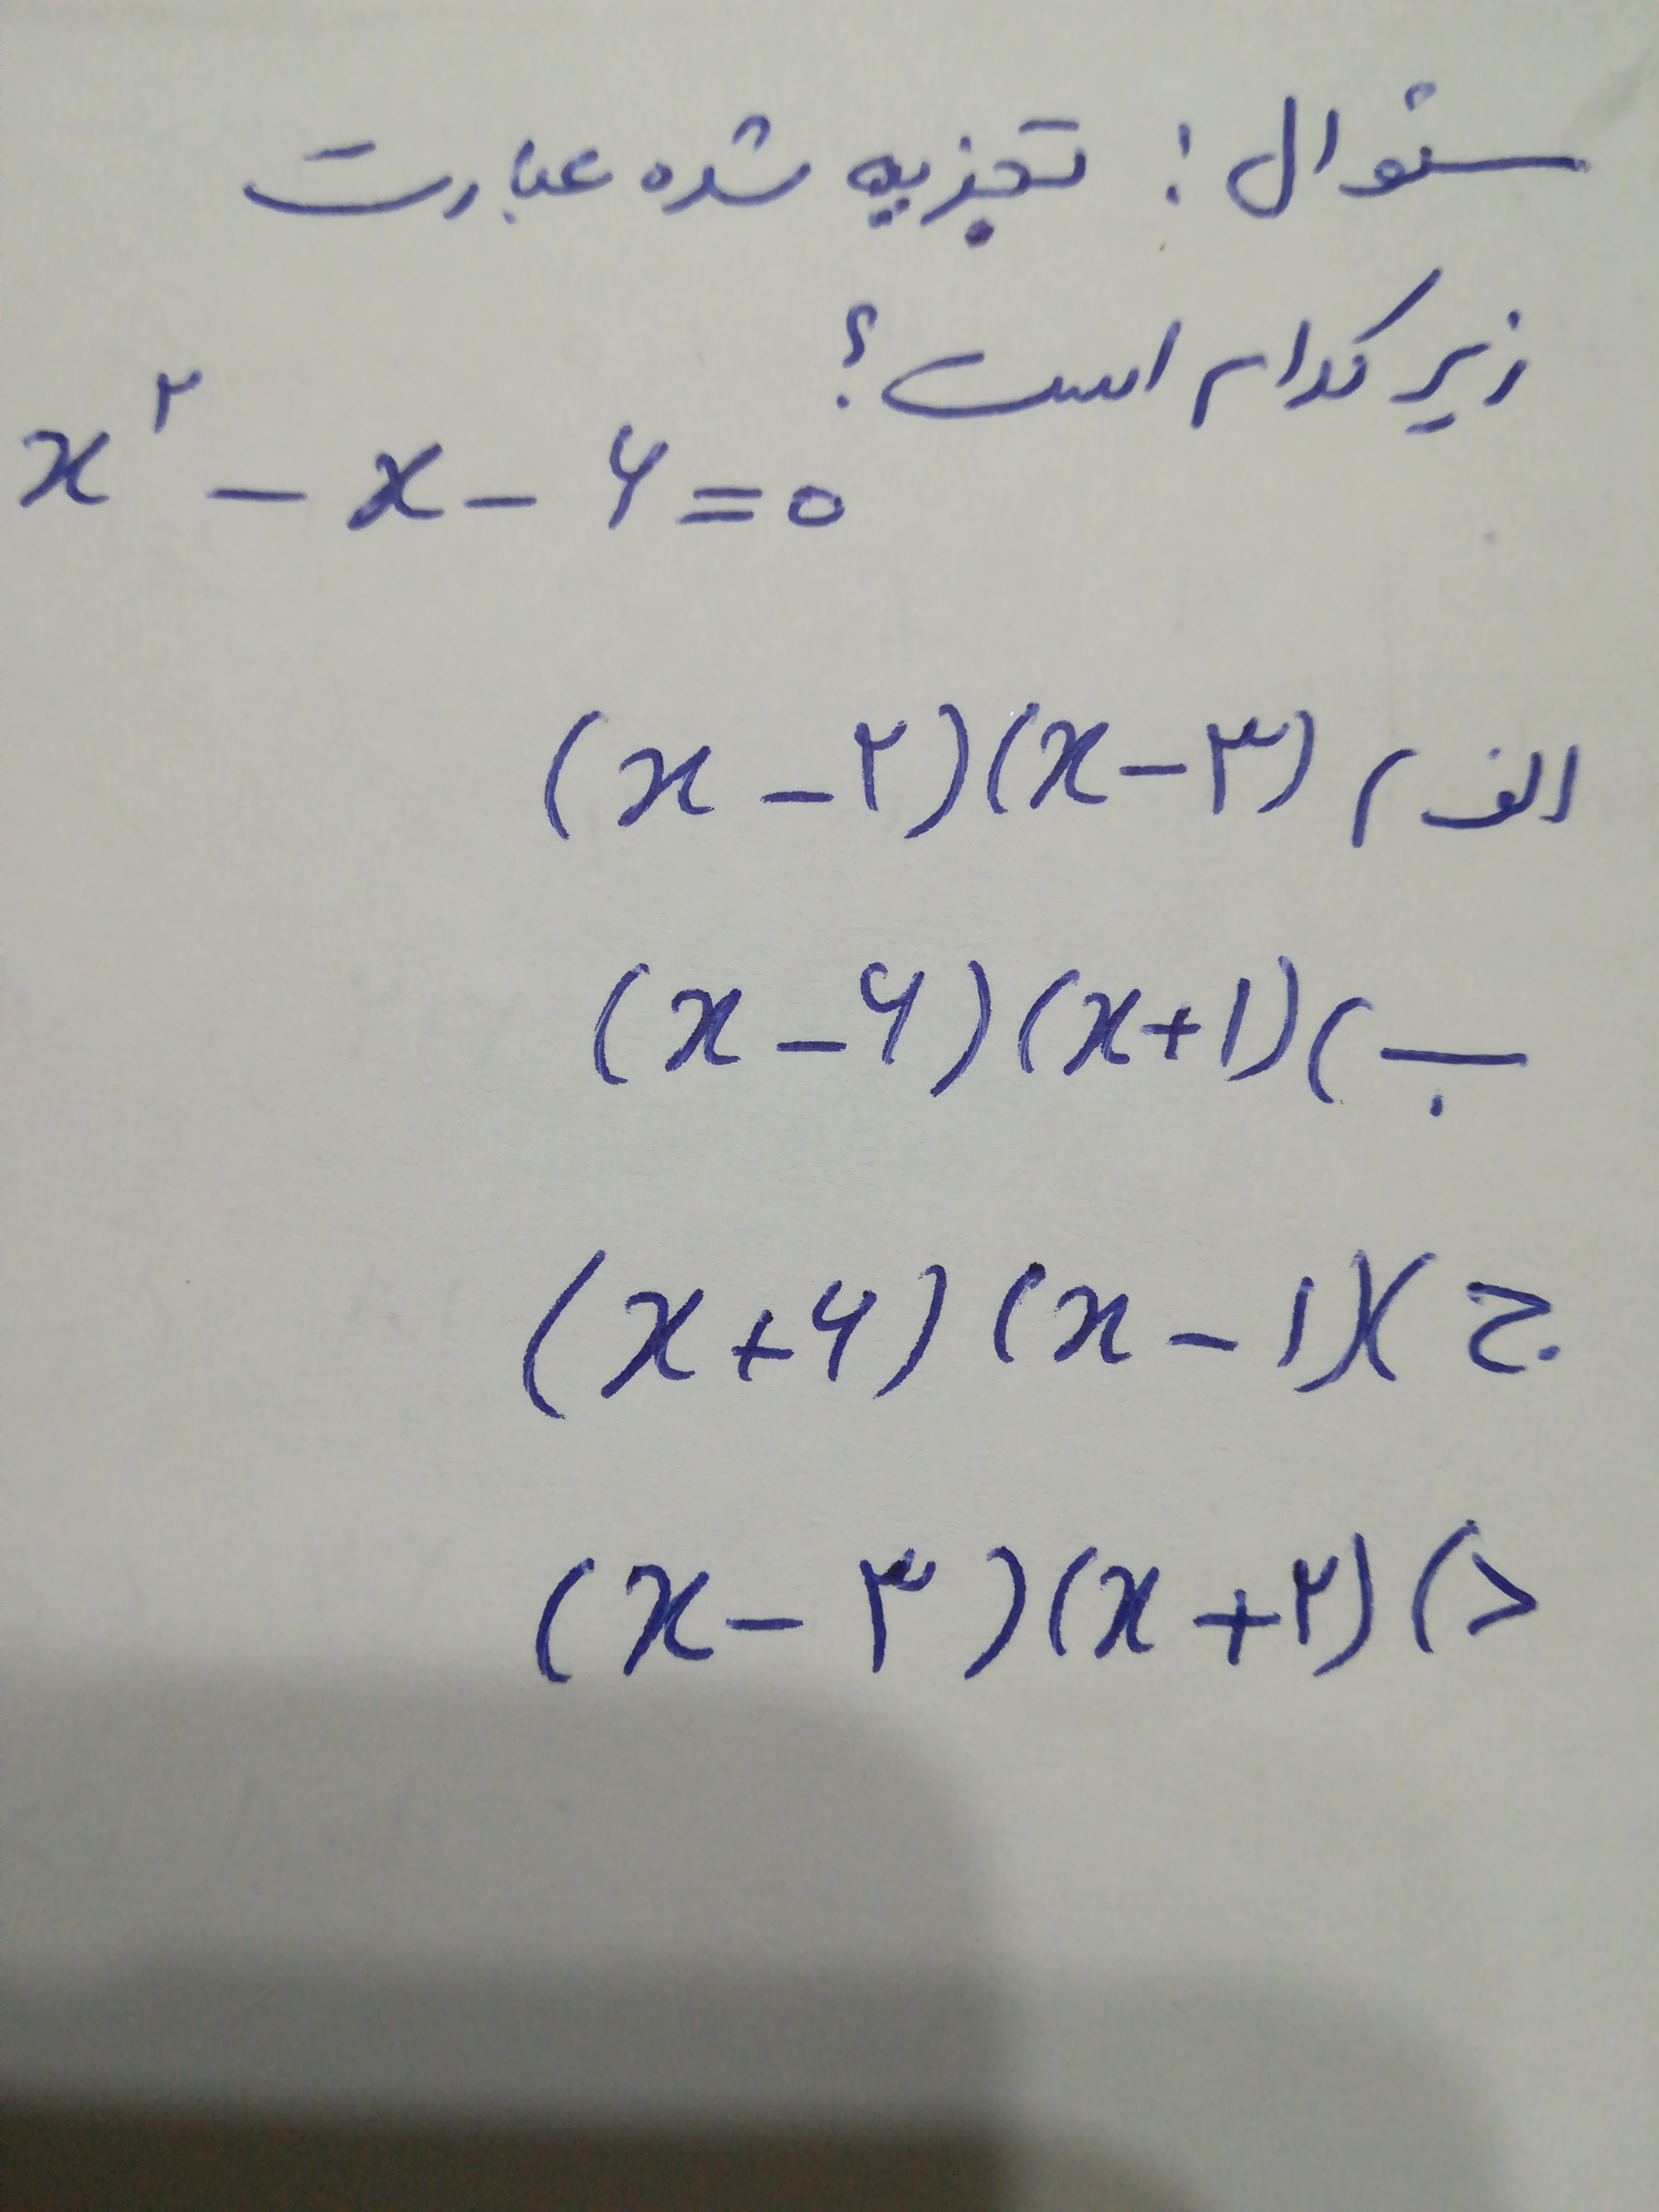 سئوال : تجزیه شده عبارت
زیر کدام است؟
x² - x - ۶ = ۰
الف) (x - ۲)(x - ۳)
ب) (x - ۶)(x + ۱)
ج) (x + ۶)(x - ۱)
د) (x - ۳)(x + ۲)